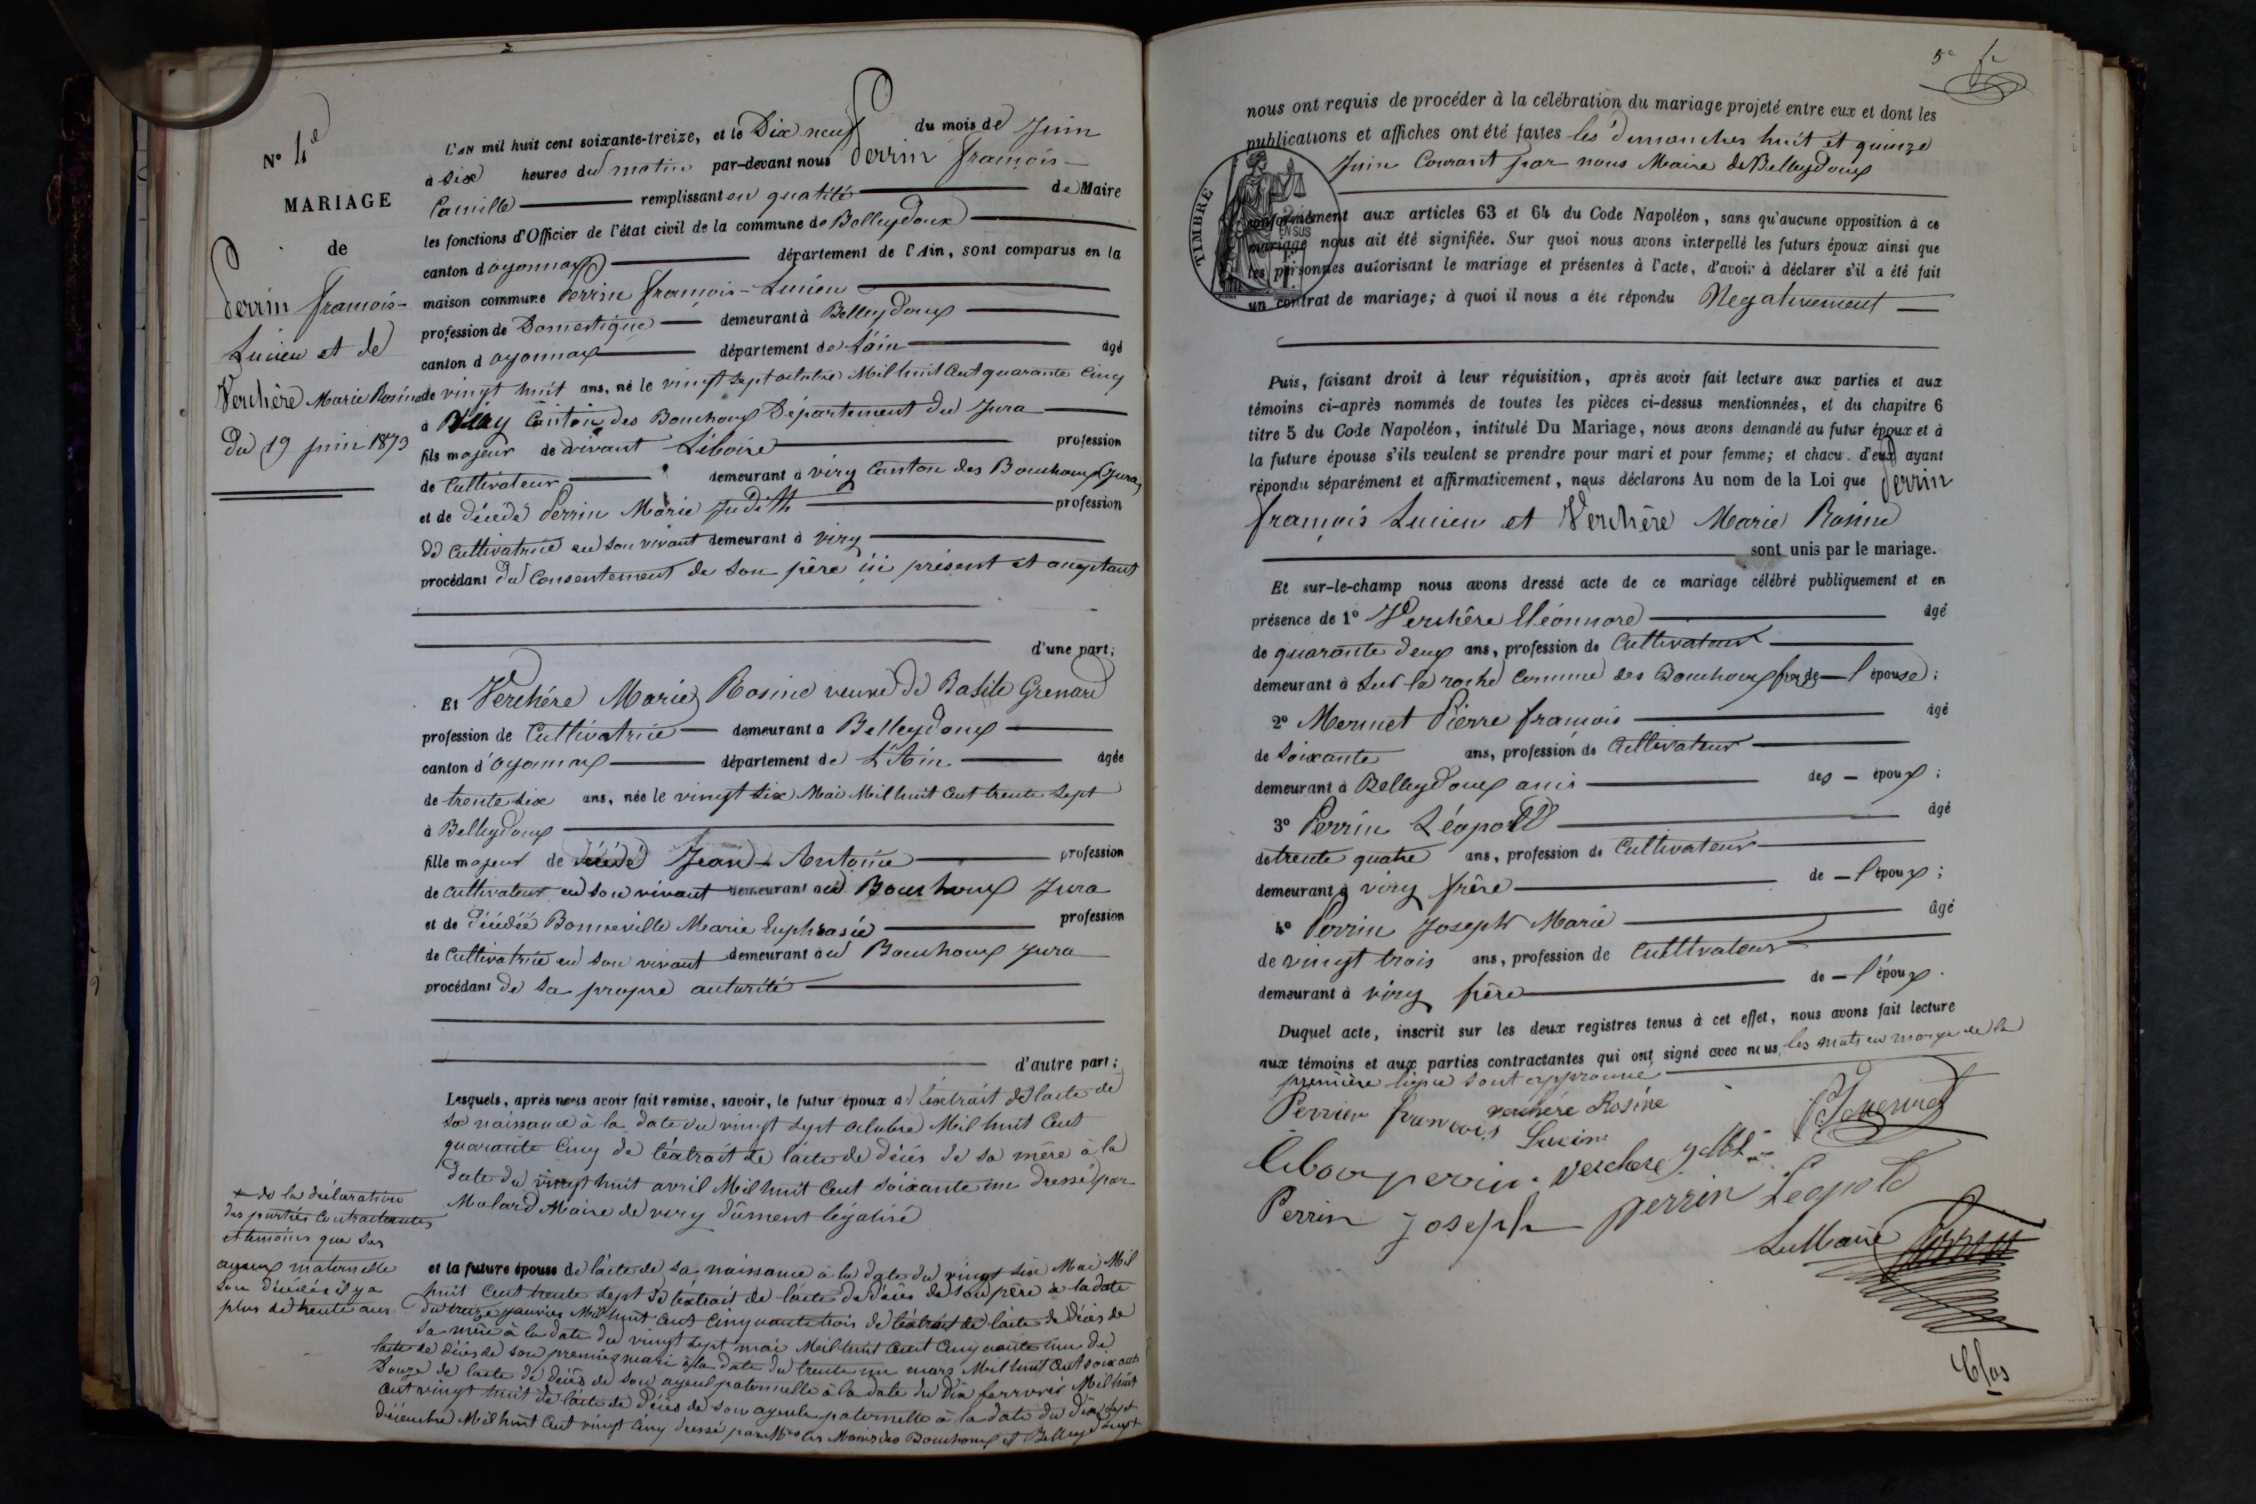 N° 4e
MARIAGE
de
Perrin françois-
Lucien et de
Verchère Marie Rosine
du 19 juin 1873
L'AN mil huit cent soixante-treize, et le Dix neuf du mois de Juin
à Six heures du matin par-devant nous Perrin françois-
Camille remplissant en qualité de Maire
les fonctions d'Officier de l'état civil de la commune de Belleydoux
canton d'oyonnax département de l'Ain, sont comparus en la
maison commune Perrin françois-Lucien
profession de Domestique demeurant à Belleydoux
canton d oyonnax département de l'ain âgé
de vingt huit ans, né le vingt sept octobre Mil huit Cent quarante Cinq
à Viry Canton des Bouchoux Département du Jura
fils majeur de vivant Liboire profession
de Cultivateur demeurant à viry Canton des Bouchoux (Jura)
et de décédé Perrin Marie Judith profession
de Cultivatrice en son vivant demeurant à viry
procédant du Consentement de son père ici présent et acceptant
d'une part;
Et Verchère Marie Rosine veuve de Basile Grenard
profession de Cultivatrice demeurant à Belleydoux
canton d'oyonnax département de L'Ain âgée
de trente six ans, née le vingt six Mai Mil huit Cent trente sept
à Belleydoux
fille majeur de décédé Jean-Antoine profession
de cultivateur en son vivant demeurant au Bouchoux Jura
et de décédée Bonneville Marie Euphrasie profession
de Cultivatrice en son vivant demeurant au Bouchoux Jura
procédant de sa propre autorité
d'autre part;
Lesquels, après nous avoir fait remise, savoir, le futur époux de l'extrait de l'acte de
sa naissance à la date du vingt sept octobre Mil huit Cent
quarante Cinq de l'extrait de l'acte de décès de sa mère à la
date du vingt huit avril Mil huit Cent soixante un dressé par
Molard Maire de viry dûment légalisé
+ de la déclaration
des parties Contractantes
et témoins que ses
ayeux maternelle
son décédés il y a
plus de trente ans
et la future épouse de l'acte de sa naissance à la date du vingt six Mai Mil
huit Cent trente sept de l'extrait de l'acte de décès de son père à la date
du treize janvier Mil huit Cent Cinquante trois de l'extrait de l'acte de décès de
sa mère à la date du vingt sept mai Mil huit Cent Cinquante un de
l'acte de décès de son premier mari à la date du trente un mars Mil huit Cent soixante
Douze de l'acte de décès de son ayeul paternelle à la date du Dix ferrvrié Mil huit
Cent vingt huit de l'acte de décès de son ayeule paternelle à la date du dix sept
décembre Mil huit Cent vingt Cinq dressé par Mrs les Maires des Bouchoux et Belleydoux
5e
nous ont requis de procéder à la célébration du mariage projeté entre eux et dont les
publications et affiches ont été faites les dimanches huit et quinze
Juin Courant par nous Maire de Belleydoux
TIMBRE
EN SUS
conformément aux articles 63 et 64 du Code Napoléon, sans qu'aucune opposition à ce
mariage nous ait été signifiée. Sur quoi nous avons interpellé les futurs époux ainsi que
les personnes autorisant le mariage et présentes à l'acte, d'avoir à déclarer s'il a été fait
un contrat de mariage; à quoi il nous a été répondu Négativement
Puis, faisant droit à leur réquisition, après avoir fait lecture aux parties et aux
témoins ci-après nommés de toutes les pièces ci-dessus mentionnées, et du chapitre 6
titre 5 du Code Napoléon, intitulé Du Mariage, nous avons demandé au futur époux et à
la future épouse s'ils veulent se prendre pour mari et pour femme; et chacu. d'eux ayant
répondu séparément et affirmativement, nous déclarons Au nom de la Loi que Perrin
françois Lucien et Verchère Marie Rosine
sont unis par le mariage.
Et sur-le-champ nous avons dressé acte de ce mariage célébré publiquement et en
présence de 1° Verchère Eléonnore âgé
de quarante deux ans, profession de Cultivateur
demeurant à Sur la roche Commune des Bouchoux frère de l'épouse;
2° Mermet Pierre françois âgé
de Soixante ans, profession de Cultivateur
demeurant à Belleydoux ami des époux;
3° Perrin Léopold âgé
de trente quatre ans, profession de Cultivateur
demeurant à viry frère de l'époux;
4° Perrin Joseph Marie âgé
de vingt trois ans, profession de Cultivateur
demeurant à viry frère de l'époux.
Duquel acte, inscrit sur les deux registres tenus à cet effet, nous avons fait lecture
aux témoins et aux parties contractantes qui ont signé avec nous, les mots en marge de la
première ligne sont approuvé
Perrier françois Lucien verchère Rosine
perrin verchere
Perrin Joseph perrin Léopold
Le Maire